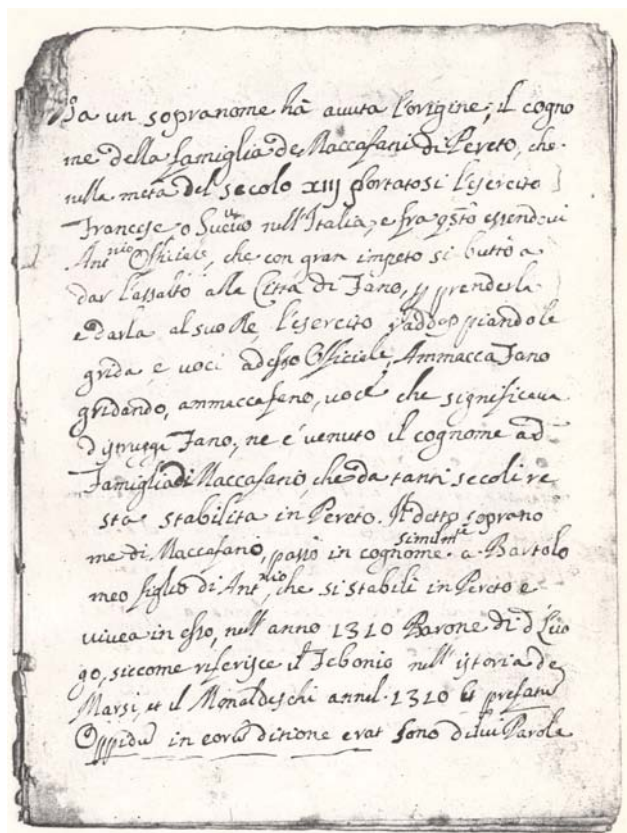 Da un sopranome hà auuta l'origine, il cogno
me della famiglia de Maccafani di Pereto, che
nella metà del secolo XIIJ portatosi l'esercito
Francese o Sueuo nell'Italia, e fra qsto essendoui
Antnio Officiale, che con gran impeto si buttò a
dar l'assalto alla Città di Fano, p prenderla
e darla al suo Rè, l'esercito raddoppiando le
grida e voci ad esso Officiale, Ammacca Fano
gridando, ammaccafeno, voce che significaua
distruggi Fano, ne è venuto il cognome ad
Famiglia di Maccafano, che da tanti secoli re
sta stabilita in Pereto. Il detto soprano
me di Maccafano, passò in cognome similmte a Bartolo
meo figlio di Antnio, che si stabilì in Pereto e
viuea in esso, nell'anno 1310 Barone di d Luo
go, siccome riferisce il Febonio nell'istoria de
Marsi, et il Monaldeschi annal. 1310 prefatu
Oppidu in eoru ditione erat sono di lui Parole